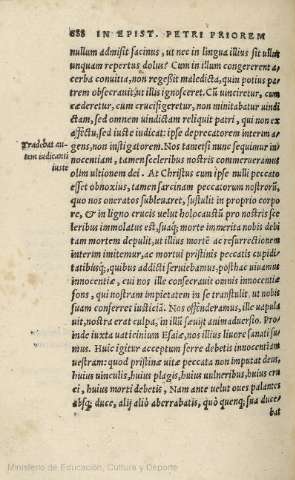 688 IN EPIST. PETRI PRIOREM
nullum admisit facinus, ut nec in lingua illius sit ullus
unquam repertus dolus? Cum in illum congererent a,
cerba conuitia, non regeßit maledicta, quin potius pa
trem obsecrauit, ut illis ignosceret. Cũ uinciretur, cum
cæderetur, cum crucifigeretur, non minitabatur uindi
ctam, sed omnem uindictam reliquit patri, qui non ex
affectu, sed iuste iudicat: ipse deprecatorem interim a,
gens, non instigatorem. Nos tametsi nunc sequimur in
Tradebat au-
tem iudicanti
iuste
nocentiam, tamen sceleribus nostris commerueramus
olim ultionem dei. At Christus cum ipse nulli peccato
esset obnoxius, tamen sarcinam peccatorum nostrorũ,
quo nos oneratos subleuaret, sustulit in proprio corpo
re, & in ligno crucis uelut holocaustũ pro nostris sce
leribus immolatus est, suaq; morte immerita nobis debi
tam mortem depulit, ut illius mortẽ ac resurrectionem
interim imitemur, ac mortui pristinis peccatis cupidi-
tatibusq;, quibus addicti seruiebamus, posthac uiuamus
innocentiæ, cui nos ille consecrauit omnis innocentiæ
fons, qui nostram impietatem in se transtulit, ut nobis
suam conferret iusticiã. Nos offenderamus, ille uapula
uit, nostra erat culpa, in illũ sæuijt animaduersio. Pro/
inde iuxta uaticinium Esaiæ, nos illius liuore sanati su/
mus. Huic igitur acceptum ferre debetis innocentiam
uestram: quod pristinæ uitæ peccata non imputat deus,
huius uinculis, huius plagis, huius uulneribus, huius cru
ci, huius morti debetis, Nam ante uelut oues palantes
absq; duce, alij aliò aberrabatis, quò quenq; sua duce/
bat
Ministerio de Educación, Cultura y Deporte